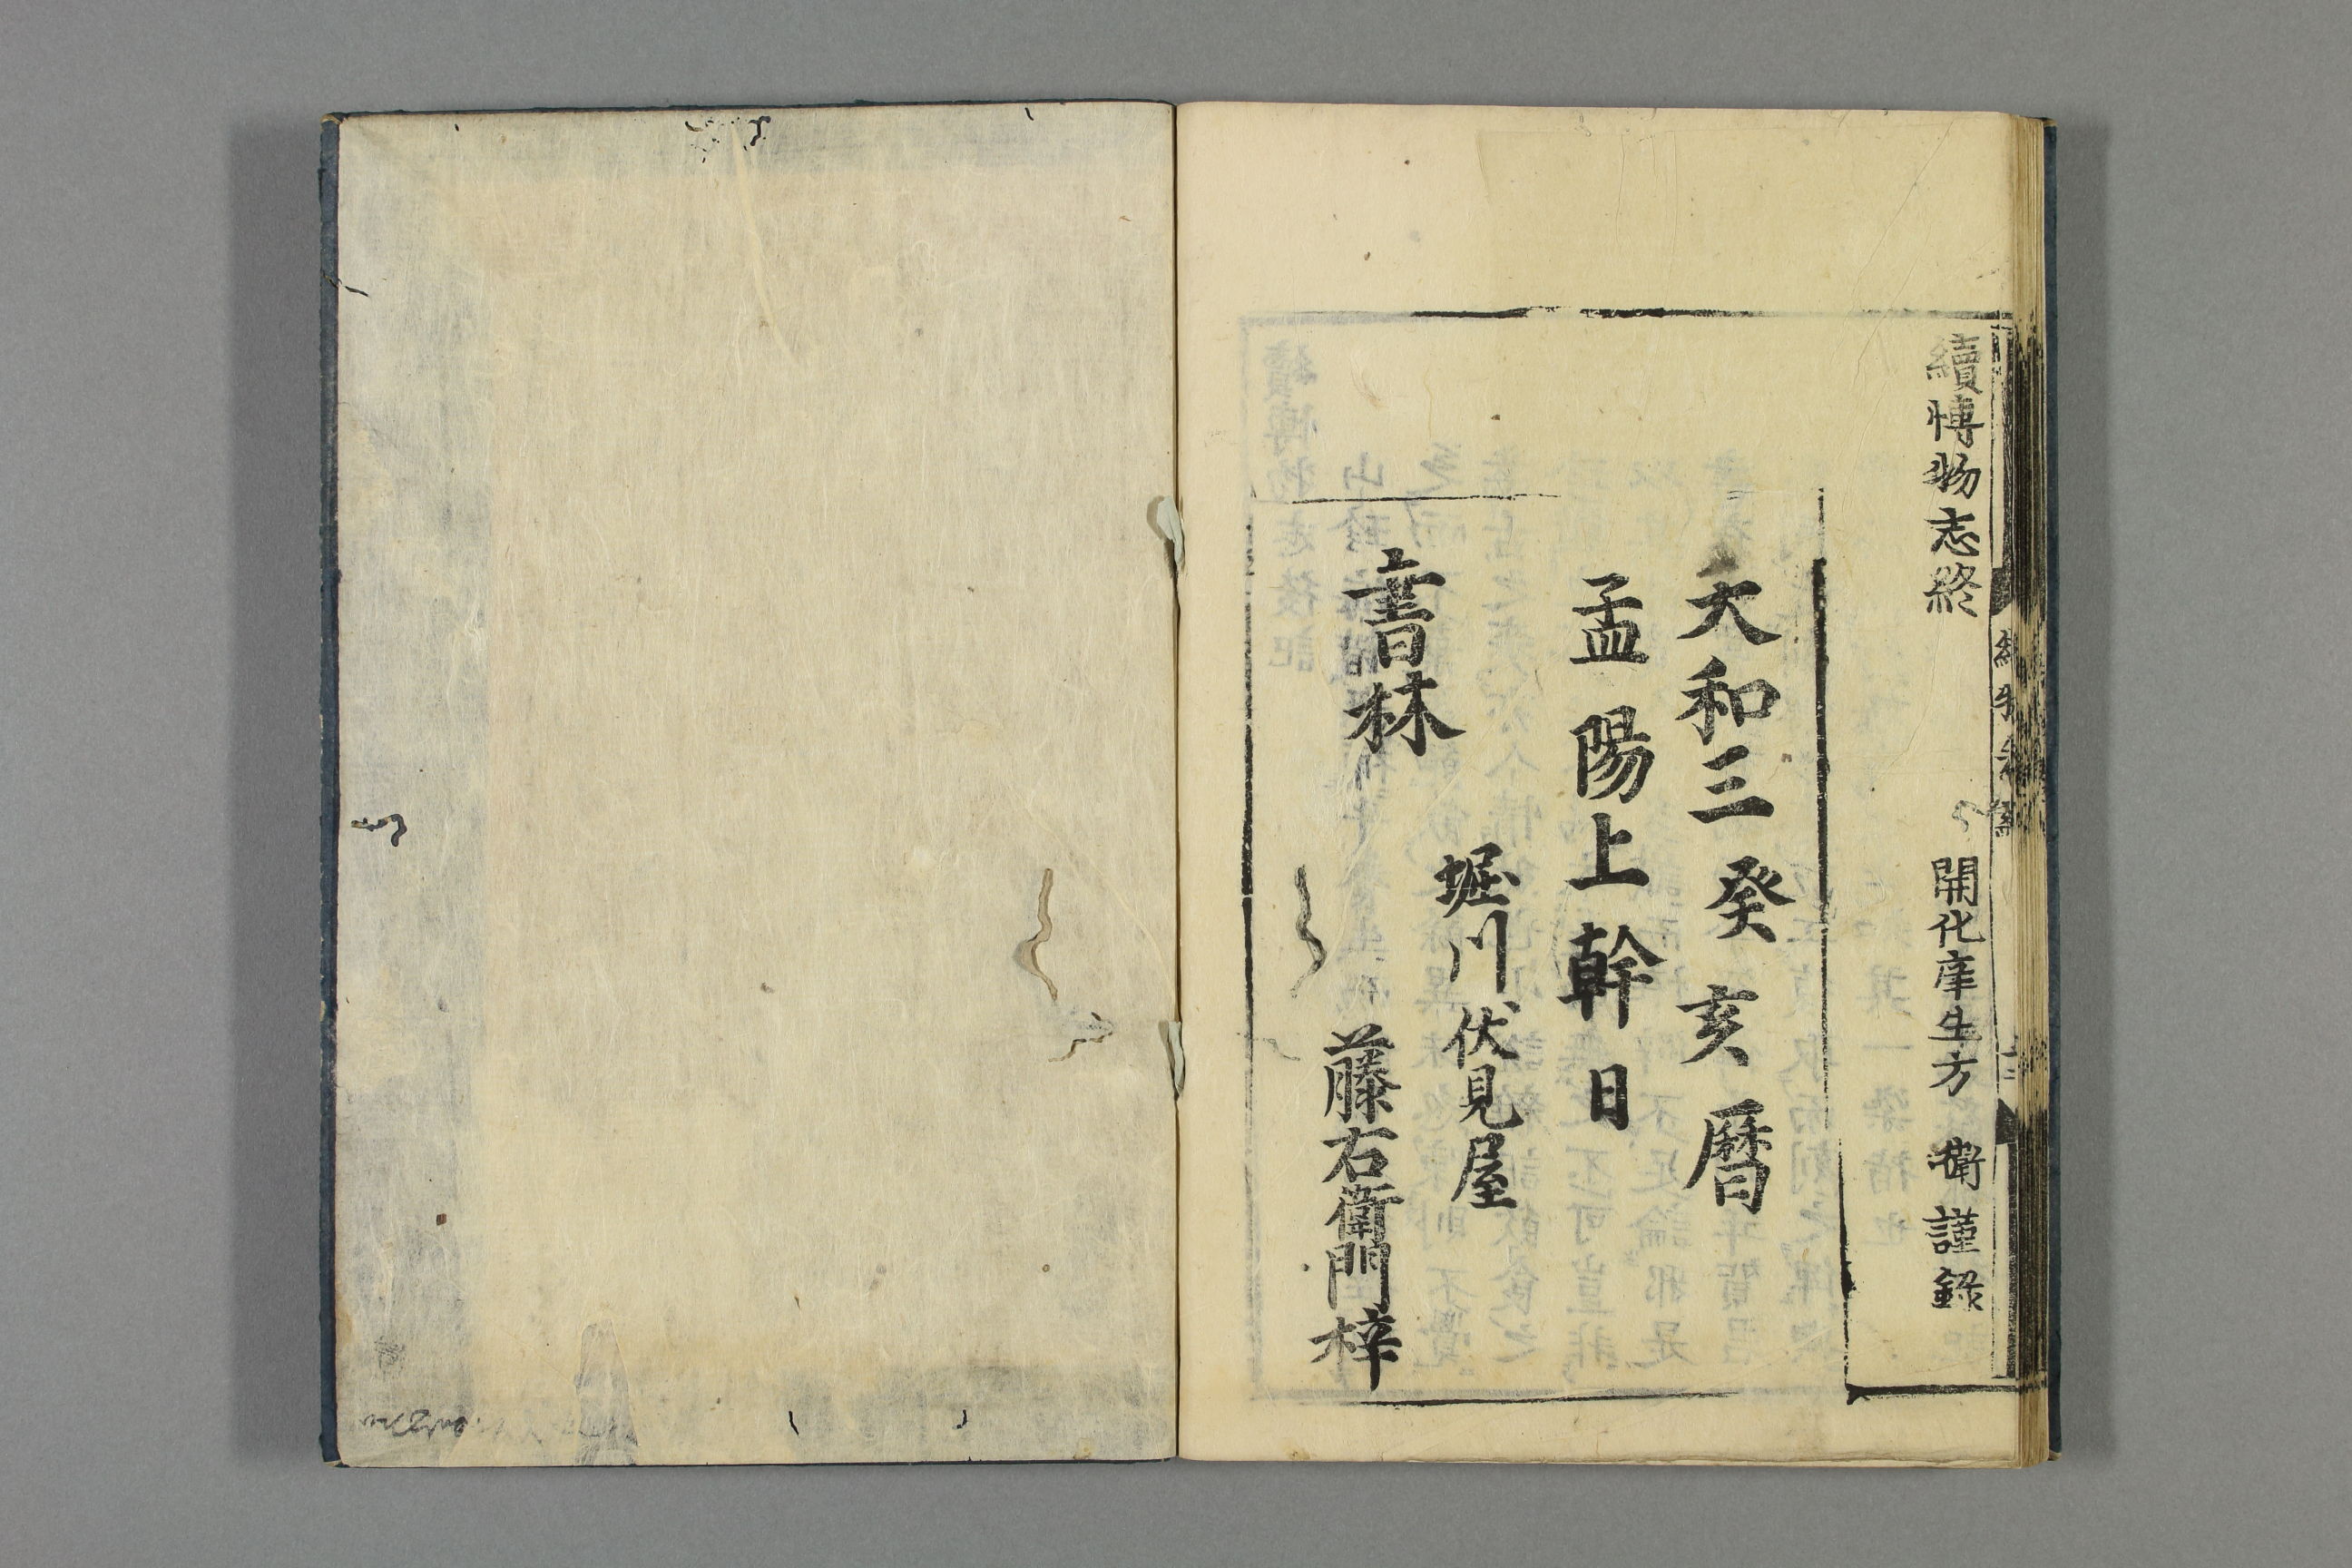 續博物志終　開化庠生方　衛　謹錄
天和三癸亥曆
孟陽上幹日
堀川伏見屋
書林
藤右衛門梓